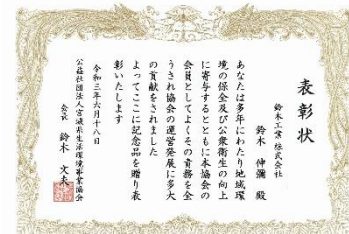 表彰状
鈴木工業 株式会社
鈴木 伸彌 殿
あなたは多年にわたり地域環
境の保全及び公衆衛生の向上
に寄与するとともに本協会の
会員としてよくその責務を全
うされ協会の運営発展に多大
の貢献をされました
よってここに記念品を贈り表
彰いたします
令和三年六月十八日
公益社団法人宮城県生活環境事業協会
会長 鈴木 文夫